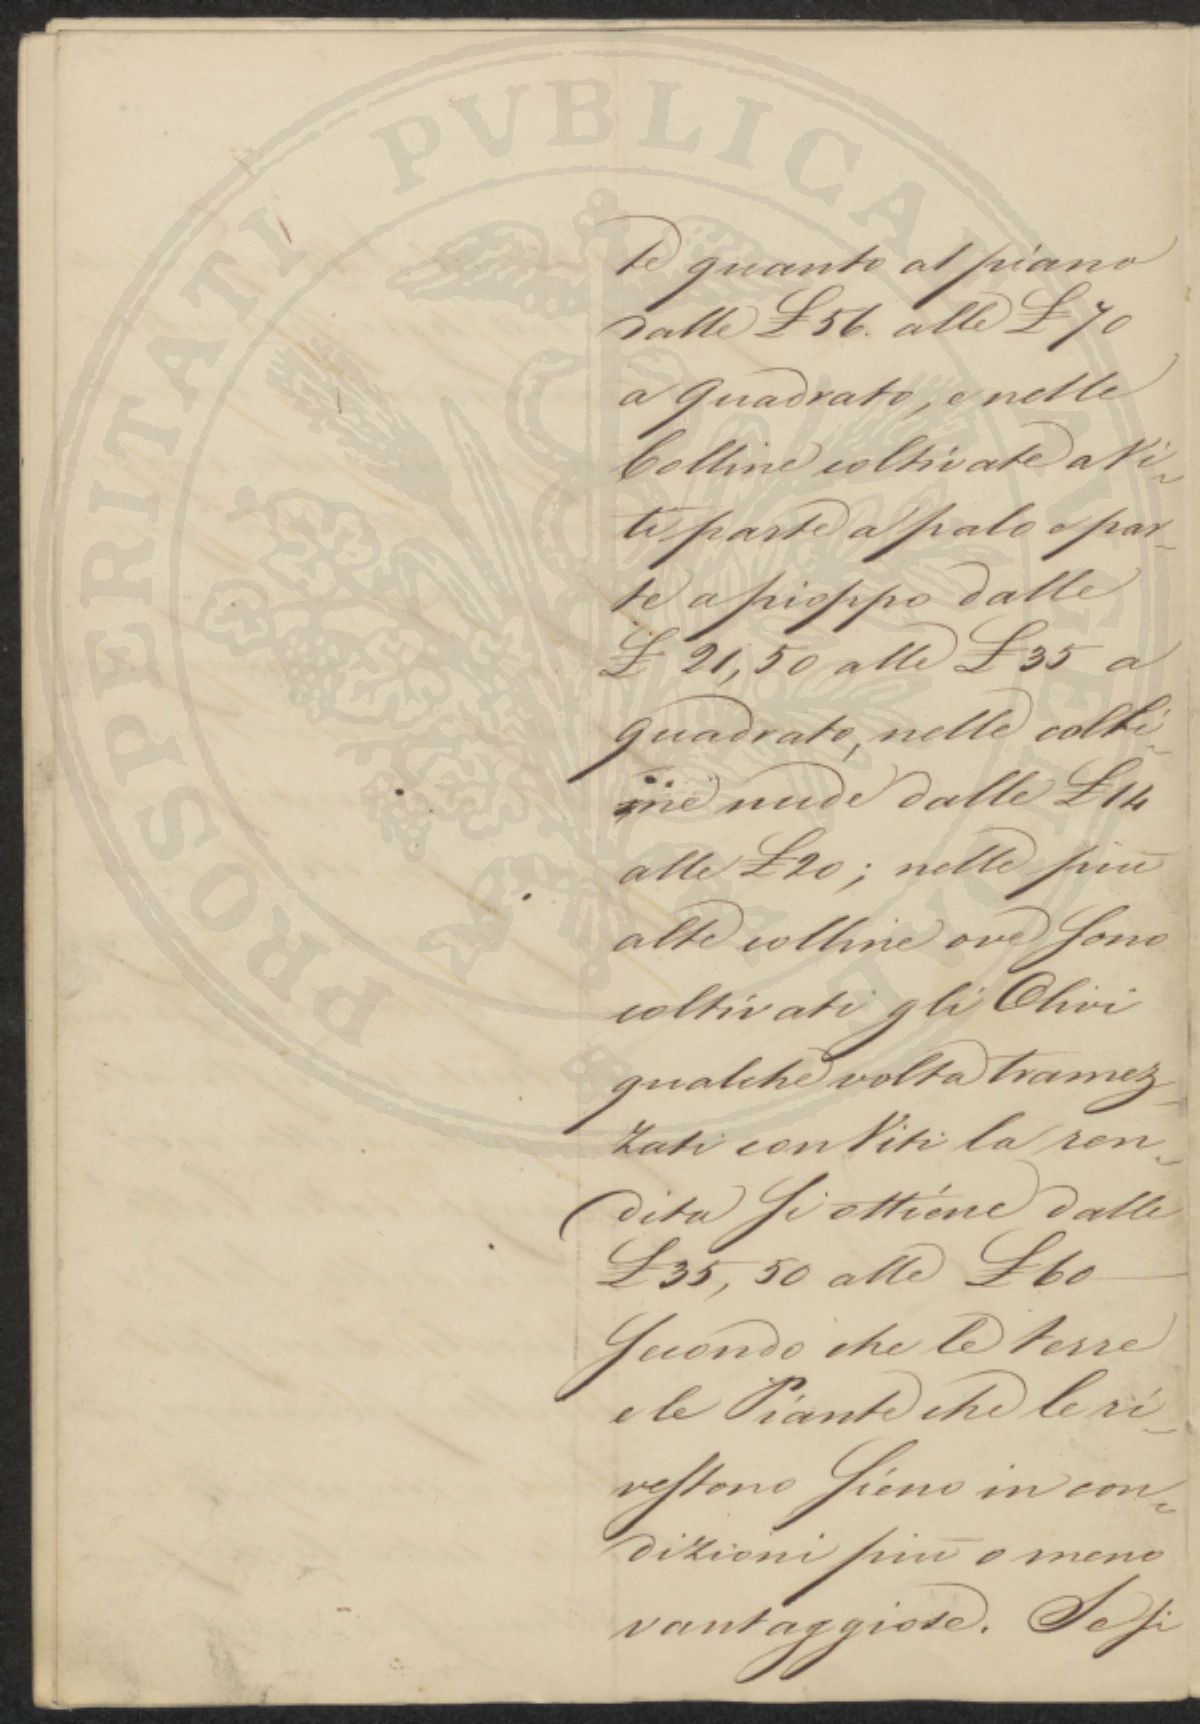 PROSPERITATI PVBLICAE AVGENDAE
te quanto al piano
dalle £ 56. alle £ 70
a quadrato, e nelle
Colline coltivate a Vi-
ti parte a palo e par-
te a pioppo dalle
£ 21,50 alle £ 35 a
quadrato, nelle colti-
ne nude dalle £ 14
alle £ 20; nelle piu
alte colline ove sono
coltivati gli Olivi
qualche volta tramez-
zati con Viti la ren-
dita si ottiene dalle
£ 35,50 alle £ 60
Secondo che le terre
e le Piante che le ri-
vestono sieno in con-
dizioni piu o meno
vantaggiose. Se si